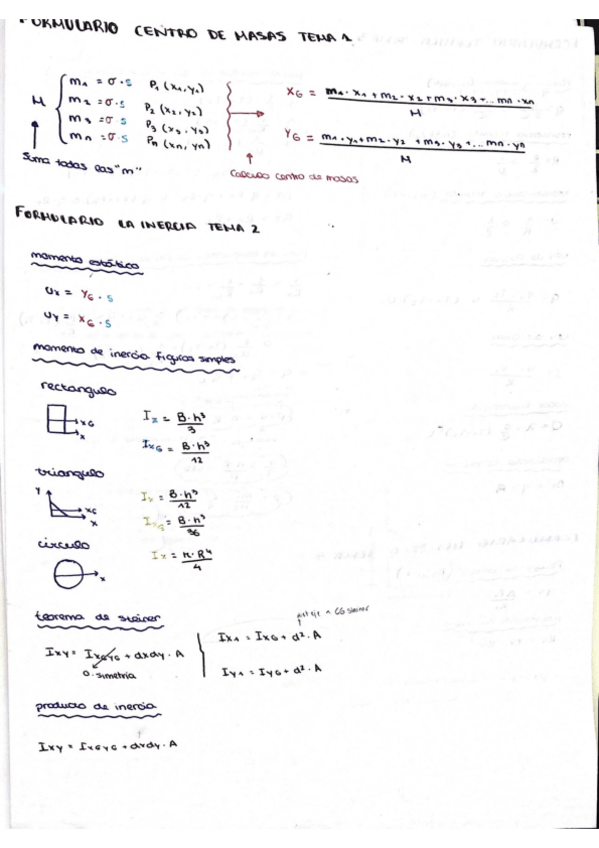 FORMULARIO CENTRO DE MASAS TEMA 1
M
m1 = σ · s P1 (x1, y1)
m2 = σ · s P2 (x2, y2)
m3 = σ · s P3 (x3, y3)
mn = σ · s Pn (xn, yn)
Suma todas las "m"
XG = m1 · x1 + m2 · x2 + m3 · x3 + ... mn · xn / M
YG = m1 · y1 + m2 · y2 + m3 · y3 + ... mn · yn / M
Calculo centro de masas
FORMULARIO LA INERCIA TEMA 2
momento estático
Ux = YG · s
Uy = XG · s
momento de inercia figuras simples
rectangulo
xG
x
Ix = B · h³ / 3
IxG = B · h³ / 12
triangulo
Y
xG
x
Ix = B · h³ / 12
IxG = B · h³ / 36
círculo
x
Ix = π · R⁴ / 4
teorema de steiner
Ixy = IxGyG + dxdy · A
0. simetria
CG steiner
Ix1 = IxG + d² · A
Iy1 = IyG + d² · A
producto de inercia
Ixy = IxGyG + dxdy · A